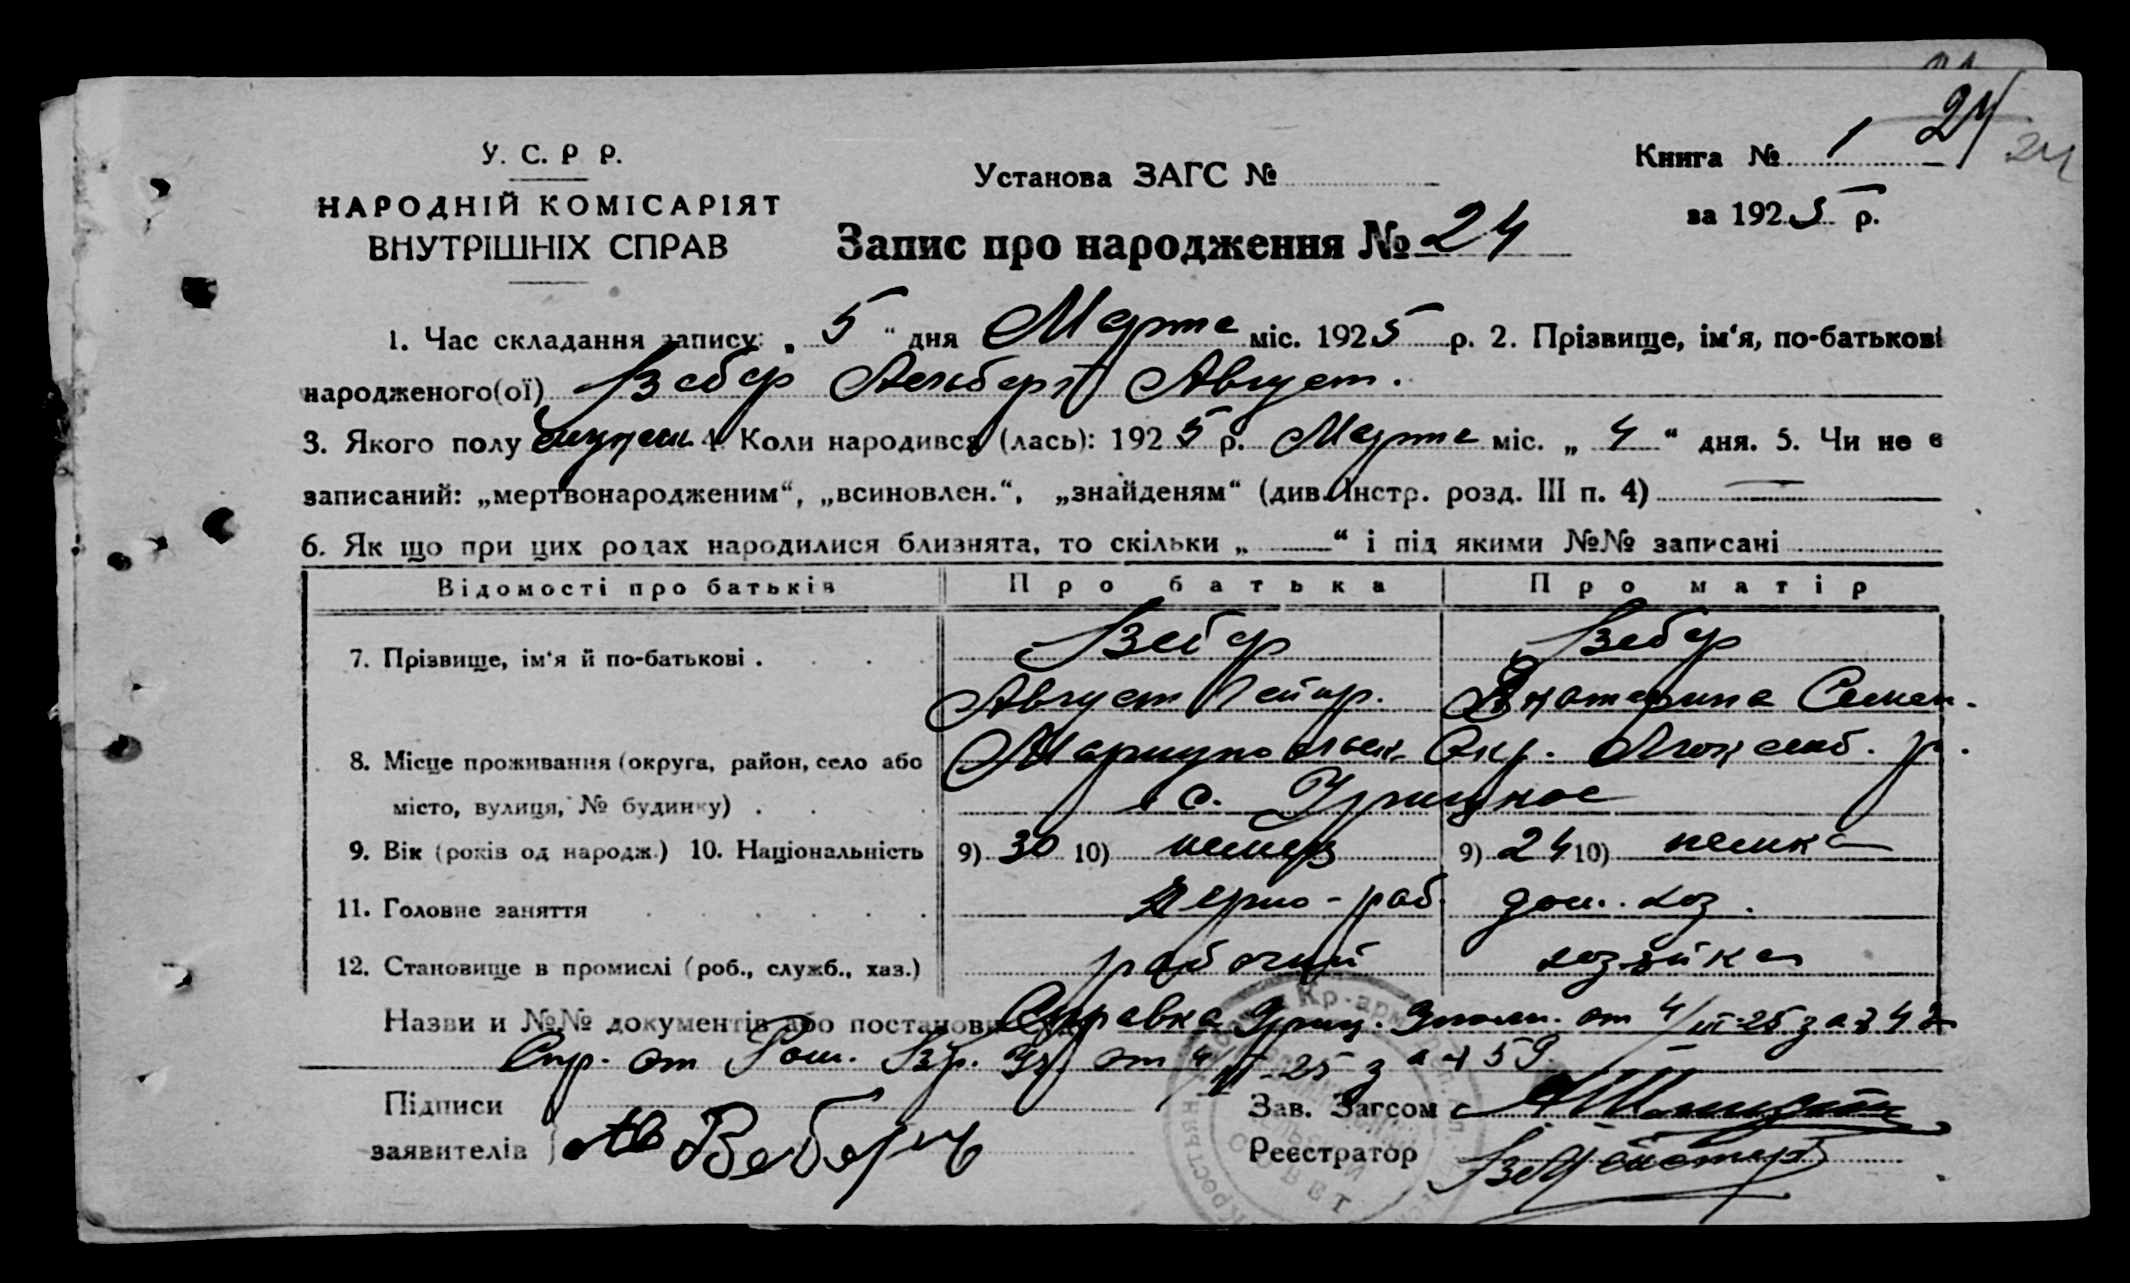 24
У. С. Р Р.
НАРОДНІЙ КОМІСАРІЯТ
ВНУТРІШНІХ СПРАВ
Установа ЗАГС №
Книга № 1 24
за 1925 р.
Запис про народження № 24
1. Час складання запису: „ 5 “ дня Марта міс. 1925 р. 2. Прізвище, ім‘я, по-батькові
народженого(ої) Вебер Альберт Август.
3. Якого полу 4. Коли народився (лась): 1925 р. Марта міс. „ 4 “ дня. 5. Чи не є
записаний: „мертвонародженим“, „всиновлен.“, „знайденям“ (див. Інстр. розд. III п. 4) —
6. Як що при цих родах народилися близнята, то скільки „ — “ і під якими №№ записані
Відомості про батьків Про батька Про матір
7. Прізвище, ім‘я й по-батькові . Вебер Вебер
Август Екатерина Семен.
8. Місце проживання (округа, район, село або Мариупольск. Окр. Люксемб. р.
місто, вулиця, № будинку) . с. Урицкое
9. Вік (років од народж.) 10. Національність 9) 30 10) немец 9) 24 10) немка
11. Головне заняття черно-раб. дом. хоз.
12. Становище в промислі (роб., служб., хаз.) рабочий хозяйка
Назви и №№ документів або постанови Справка от 4/III-25 за
Спр. от от 4/III-25 за № 59.
Підписи
заявителів Ав Веберъ
Зав. Загсом
Реєстратор